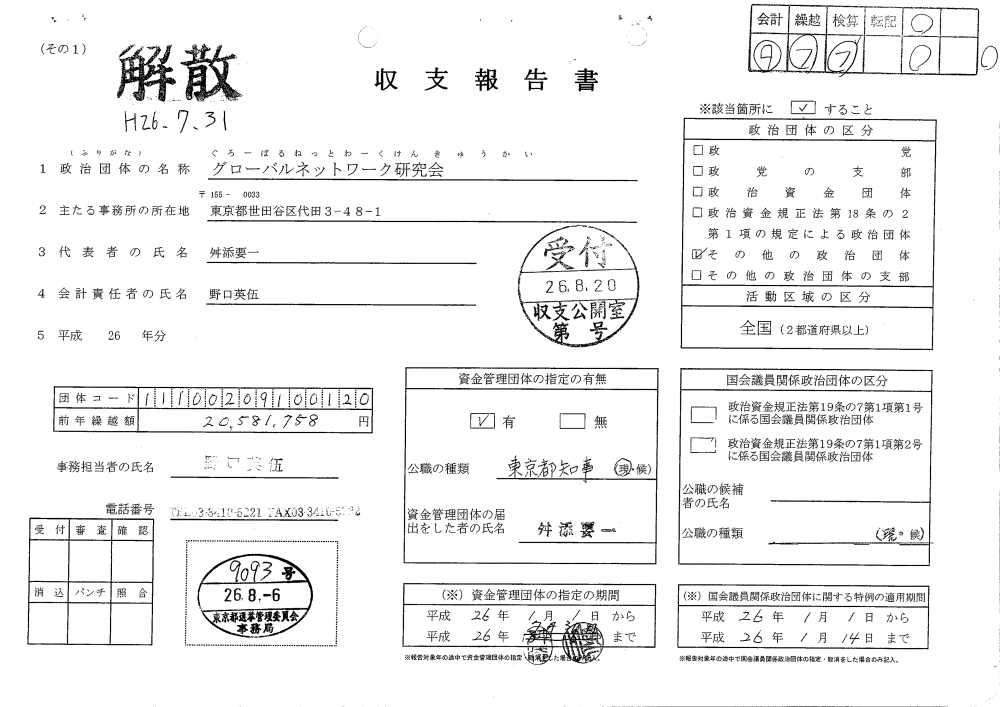 (その1)
解散
H26.7.31
収支報告書
会計 繰越 検算 転記
(ふりがな) ぐろーばるねっとわーくけんきゅうかい
1 政治団体の名称 グローバルネットワーク研究会
〒155-0033
2 主たる事務所の所在地 東京都世田谷区代田3-48-1
3 代表者の氏名 舛添要一
4 会計責任者の氏名 野口英伍
5 平成 26 年分
受付
26.8.20
収支公開室
第 号
※該当箇所に ✓ すること
政治団体の区分
□政党
□政党の支部
□政治資金団体
□政治資金規正法第18条の2
第1項の規定による政治団体
☑その他の政治団体
□その他の政治団体の支部
活動区域の区分
全国(2都道府県以上)
団体コード 11100209100120
前年繰越額 20,581,758 円
事務担当者の氏名 野口英伍
電話番号
受付 審査 確認
消込 パンチ 照合
9093号
26.8.-6
東京都選挙管理委員会
事務局
資金管理団体の指定の有無
✓ 有 無
公職の種類 東京都知事 (現・候)
資金管理団体の届
出をした者の氏名 舛添要一
(※) 資金管理団体の指定の期間
平成 26 年 1 月 1 日 から
平成 26 年 まで
※報告対象年の途中で資金管理団体の指定・取消をした場合のみ記入。
国会議員関係政治団体の区分
政治資金規正法第19条の7第1項第1号
に係る国会議員関係政治団体
政治資金規正法第19条の7第1項第2号
に係る国会議員関係政治団体
公職の候補
者の氏名
公職の種類 (現・候)
(※) 国会議員関係政治団体に関する特例の適用期間
平成 26 年 1 月 1 日 から
平成 26 年 1 月 14 日 まで
※報告対象年の途中で国会議員関係政治団体の指定・取消をした場合のみ記入。